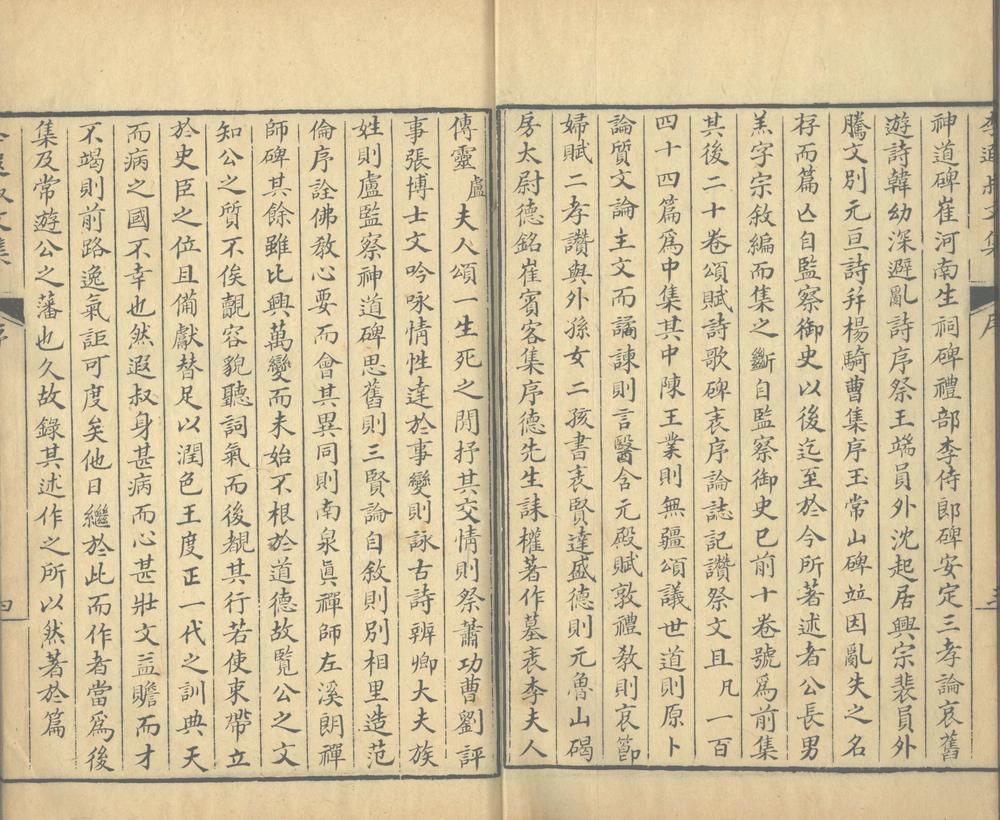 李遐叔文集
序
三
神道碑崔河南生祠碑禮部李侍郎碑安定三孝論哀舊
遊詩韓幼深避亂詩序祭王端員外沈起居興宗裴員外
騰文別元亘詩并楊騎曹集序王常山碑竝因亂失之名
存而篇亾自監察御史以後迄至於今所著述者公長男
羔字宗敘編而集之斷自監察御史已前十卷號爲前集
其後二十卷頌賦詩歌碑表序論誌記讚祭文且凡一百
四十四篇爲中集其中陳王業則無疆頌議世道則原卜
論質文論主文而譎諫則言毉含元殿賦敦禮敎則哀節
婦賦二孝讚與外孫女二孩書表賢達盛德則元魯山碣
房太尉德銘崔賓客集序德先生誄權著作墓表李夫人
傳靈盧夫人頌一生死之閒抒其交情則祭蕭功曹劉評
事張博士文吟咏情性達於事變則詠古詩辨卿大夫族
姓則盧監察神道碑思舊則三賢論自敘則別相里造范
倫序詮佛敎心要而會其異同則南泉眞禪師左溪朗禪
師碑其餘雖比興萬變而未始不根於道德故覽公之文
知公之質不俟覿容貌聽詞氣而後覩其行若使束帶立
於史臣之位且備獻替足以潤色王度正一代之訓典天
而病之國不幸也然遐叔身甚病而心甚壯文益贍而才
不竭則前路逸氣詎可度矣他日繼於此而作者當爲後
集及常遊公之藩也久故錄其述作之所以然著於篇
李遐叔文集
序
四